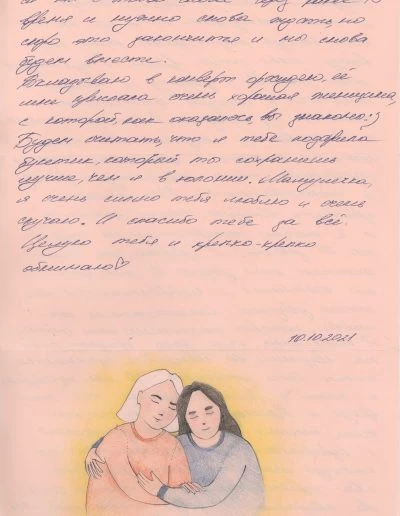 время и нужно снова но
скоро это закончится и мы снова
будем вместе.
Вкладываю в конверт орхидею, её
мне очень хорошая женщина,
с которой, как оказалось, вы знакомы :)
Будем считать, что я тебе подарила
букетик, который ты сохранишь
лучше, чем я в колонии. Мамулечка,
я очень сильно тебя люблю и очень
скучаю. И спасибо тебе за всё.
Целую тебя и крепко-крепко
обнимаю♡
10.10.2021